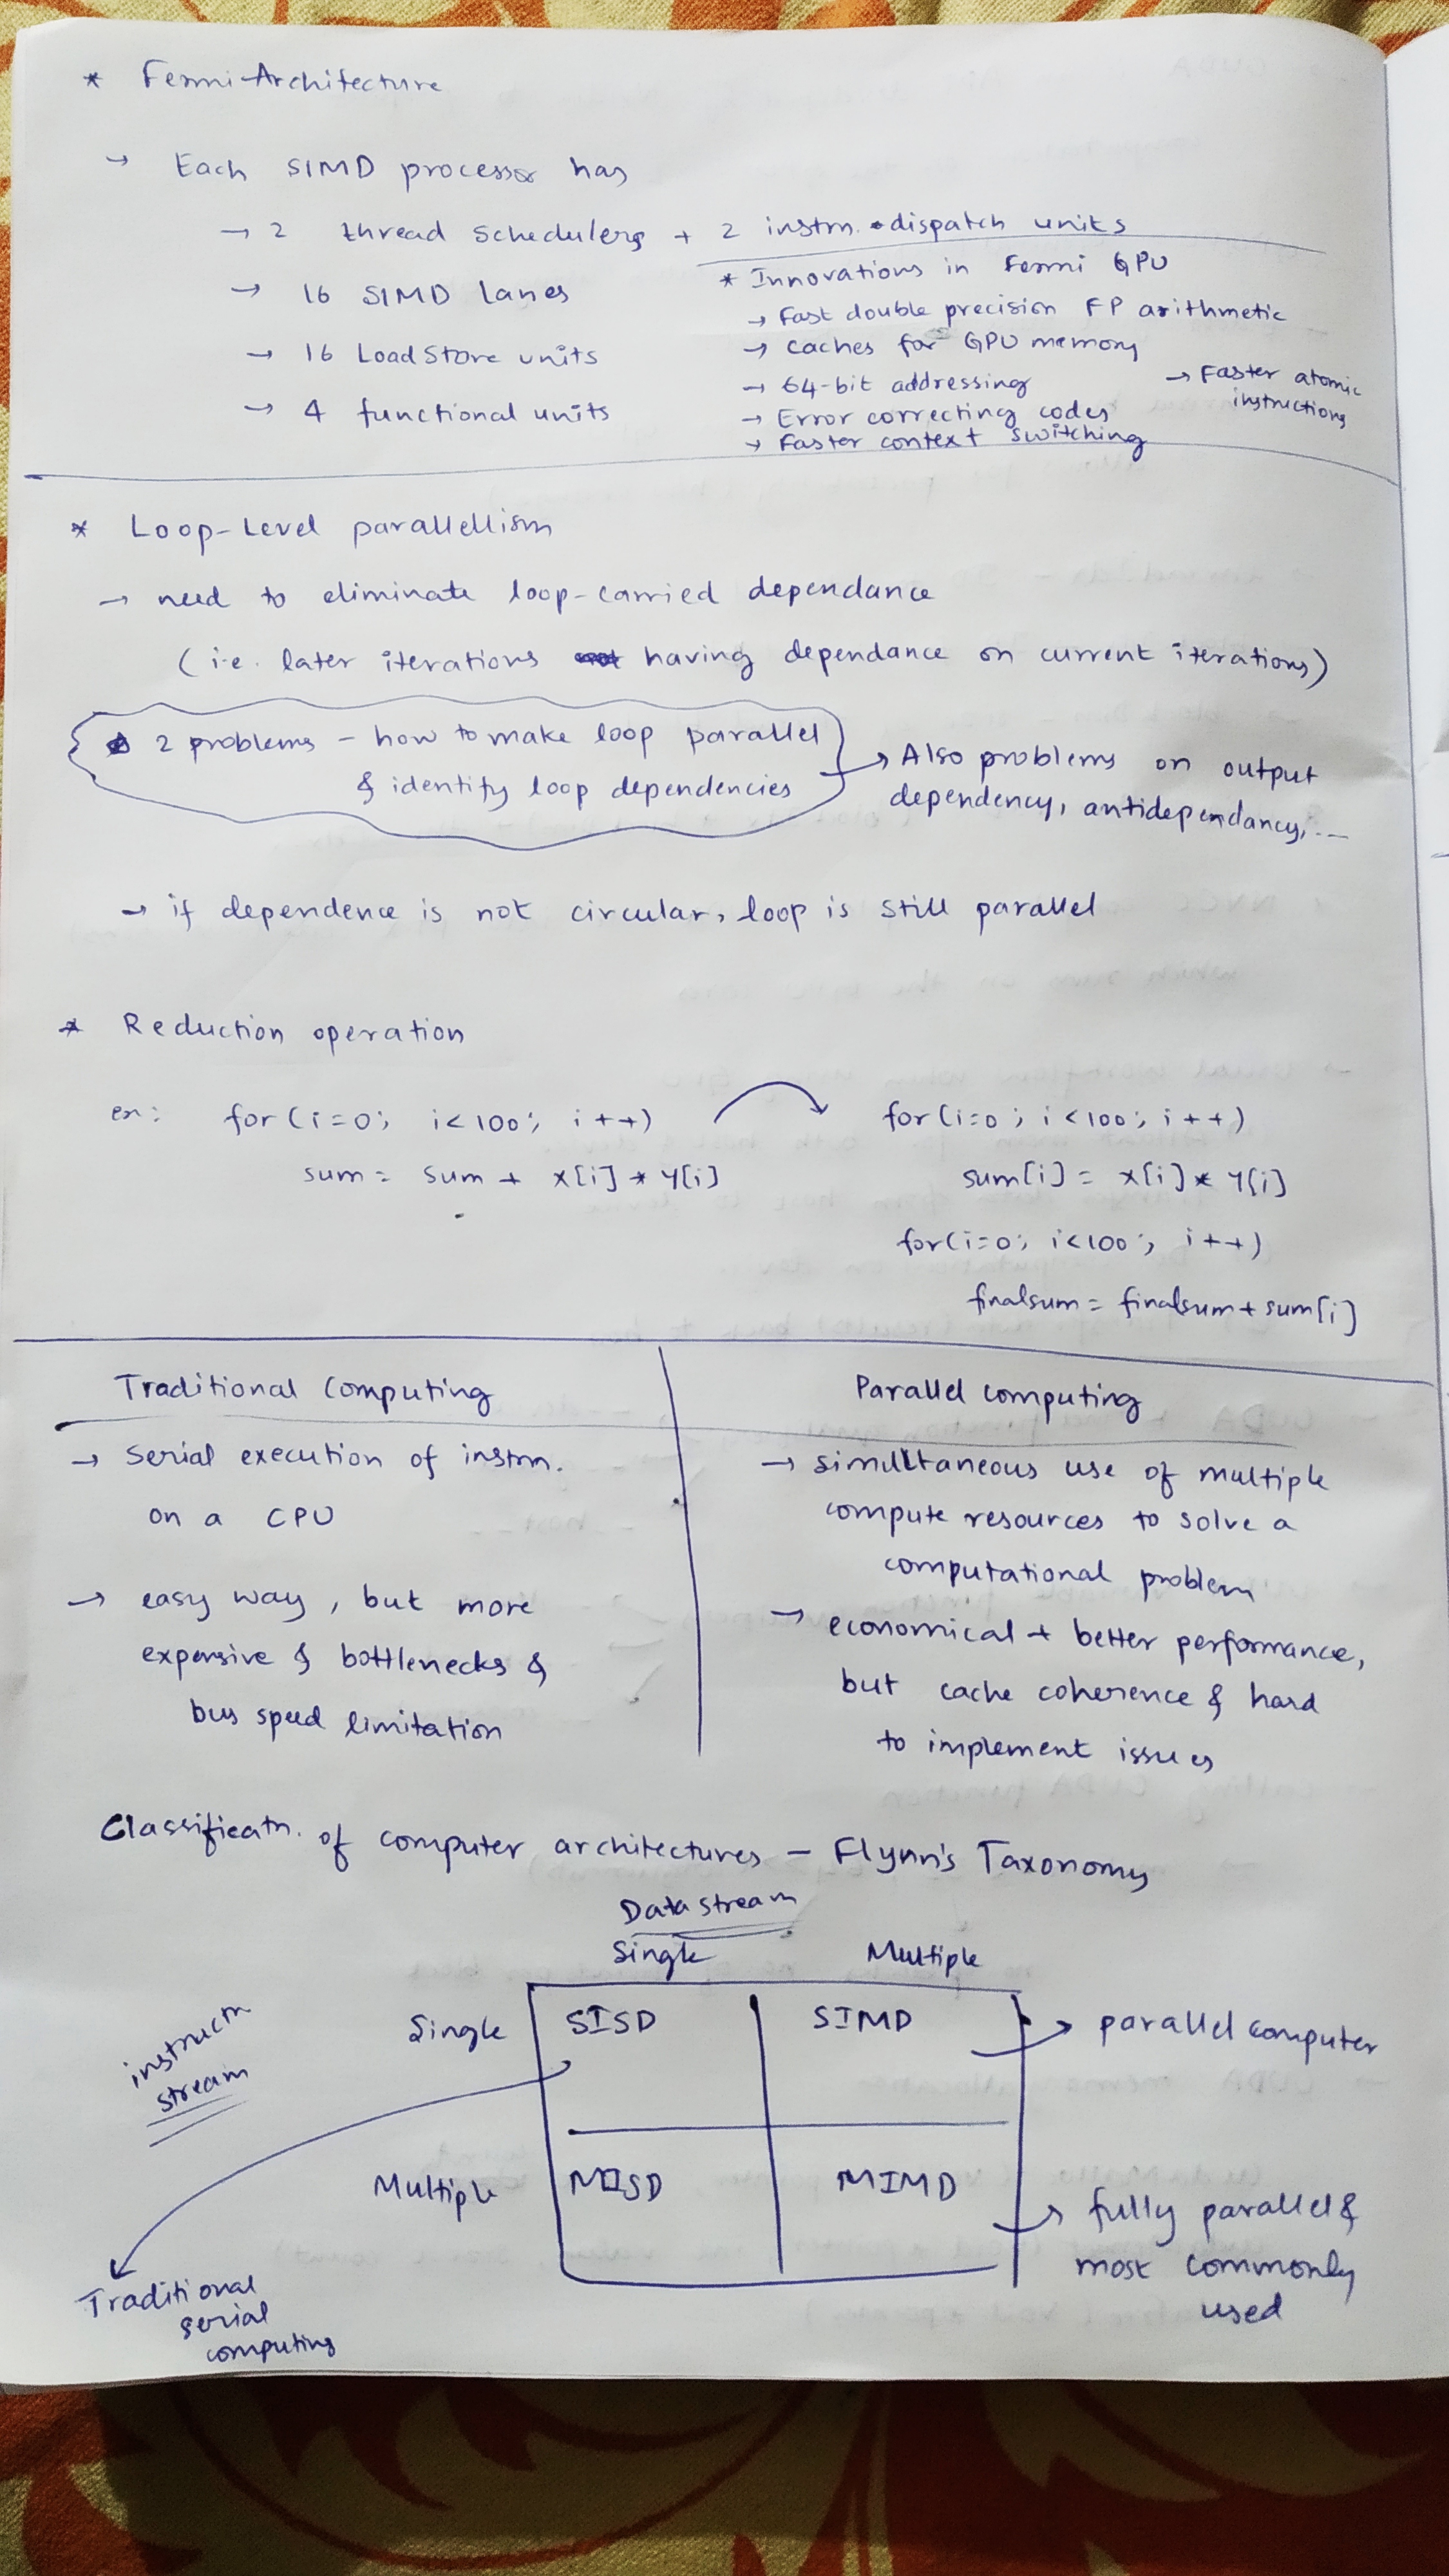 * Fermi-Architecture
→ Each SIMD processor has
→ 2 thread schedulers + 2 instrn. dispatch units
→ 16 SIMD lanes
→ 16 Load Store units
→ 4 functional units
* Innovations in Fermi GPU
→ Fast double precision FP arithmetic
→ caches for GPU memory
→ 64-bit addressing
→ Error correcting codes
→ Faster context switching
→ Faster atomic
instructions
* Loop-Level parallellism
→ need to eliminate loop-carried dependance
(i.e. later iterations having dependance on current iterations)
2 problems - how to make loop parallel
& identify loop dependencies
→ Also problems on output
dependency, antidependancy, ...
→ if dependence is not circular, loop is still parallel
* Reduction operation
ex: for (i=0; i<100; i++)
sum = sum + x[i] * Y[i]
for (i=0; i<100; i++)
sum[i] = x[i] * Y[i]
for(i=0; i<100; i++)
finalsum = finalsum + sum[i]
Traditional Computing
→ Serial execution of instrn.
on a CPU
→ easy way, but more
expensive & bottlenecks &
bus speed limitation
Parallel computing
→ simultaneous use of multiple
compute resources to solve a
computational problem
→ economical + better performance,
but cache coherence & hard
to implement issues
Classificatn. of computer architectures - Flynn's Taxonomy
Data stream
Single Multiple
instructn
stream
Single SISD SIMD → parallel computer
Multiple MISD MIMD → fully parallel &
most commonly
used
Traditional
serial
computing